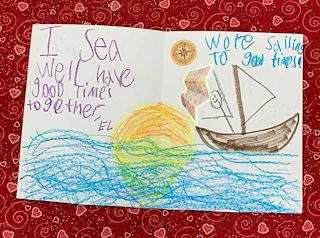 I Sea
We'll have
good times
together
EL
We're Sailing
TO good times